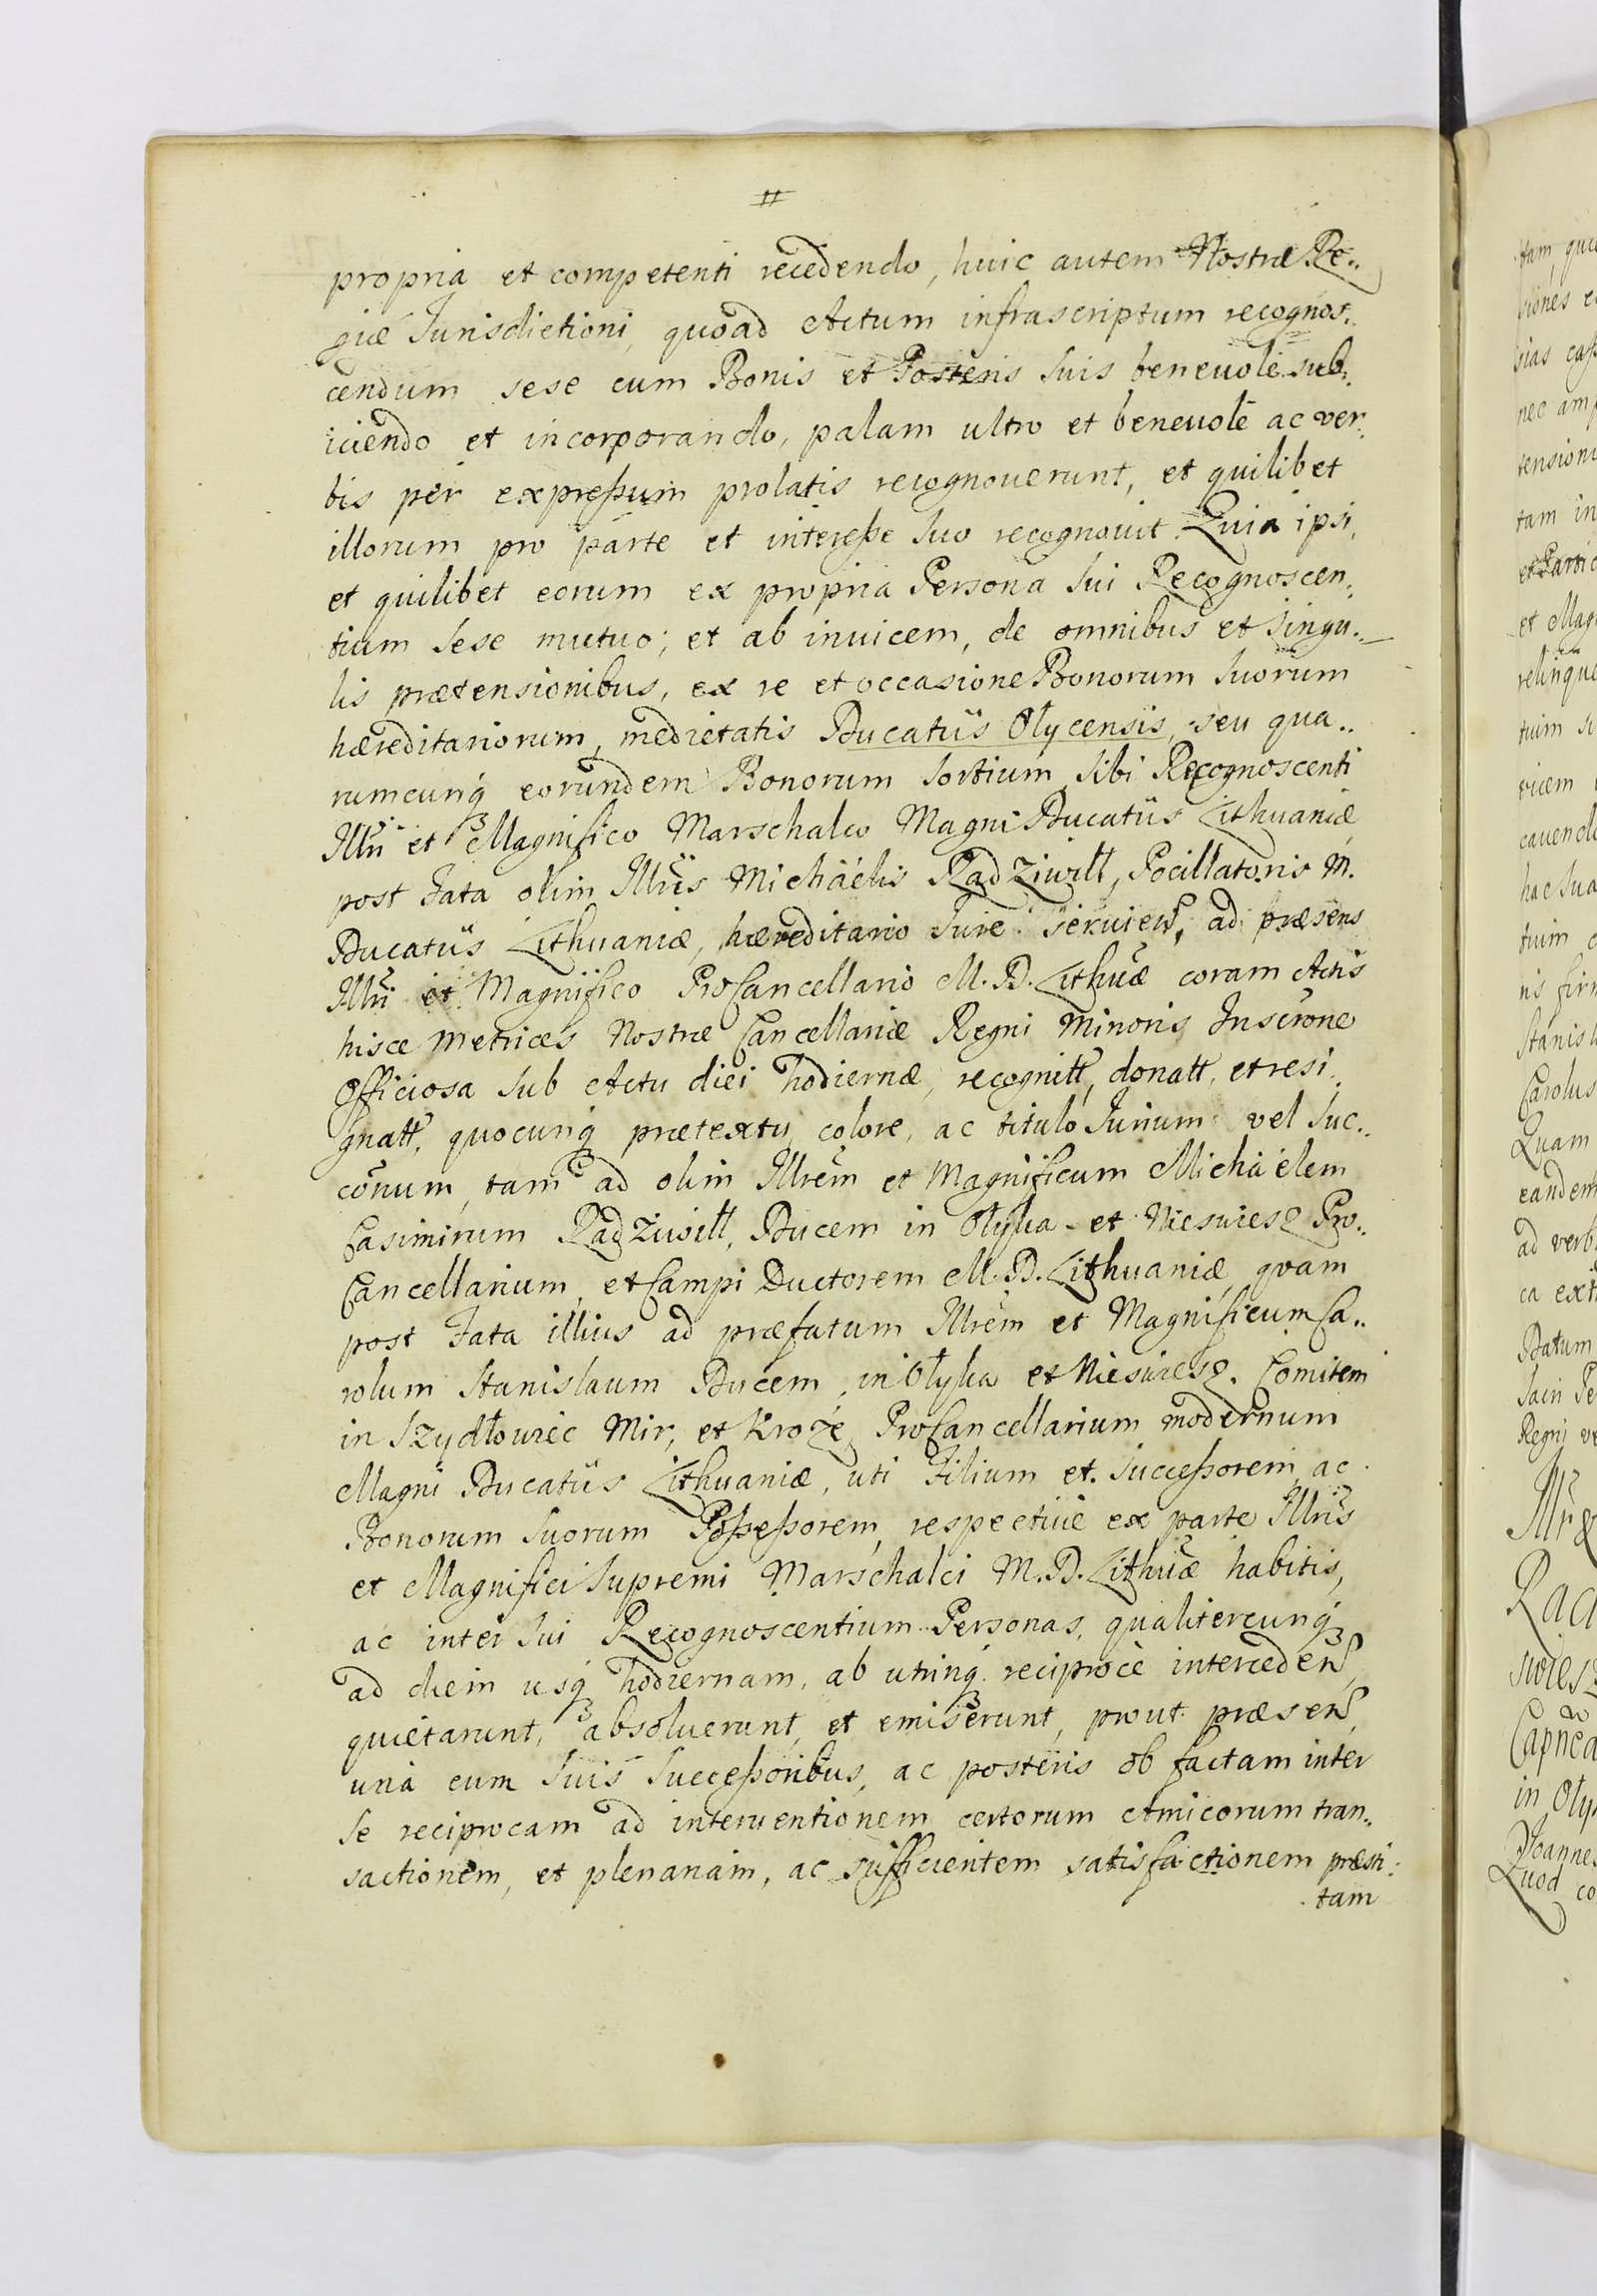 #
propria et competenti recedendo, huic autem Nostræ Re..
giæ Jurisdictioni, quoad Actum infrascriptum recognos..
cendum sese cum Bonis et Posteris suis beneuole sub..
iiciendo et incorporando, palam ultro et beneuolè ac ver..
bis per expreßum prolatis recognouerunt, et quilibet
illorum pro parte et intereße suo recognouit. Quia ipsi,
et quilibet eorum ex propria Persona sui Recognoscen..
tium sese mutuo; et ab inuicem, de omnibus et singu..
lis prætensionibus, ex re et occasione Bonorum suorum
hæreditariorum, medietatis Ducatûs Olycensis, seu qua..
rumcunq̃ eorundem Bonorum sortium, sibi Recognoscenti
Illri et Magnifico Marschalco Magni Ducatûs Lithuaniæ
post Fata olim Illris Michaëlis Radziwiłł, Pocillatoris M.
Ducatûs Lithuaniæ, hæreditario Jure seruien, ad præsens
Illri et Magnifico ProCancellario M. D. Lithuæ coram Actis
hisce Metrices Nostræ Cancellariæ Regni Minoris Inscrone
Officiosa sub Actu diei hodiernæ, recognitt, donatt, et resi..
gnatt, quocunq̃ prætextu, colore, ac titulo Jurium vel Suc..
cõnum, tam ad olim Illrem et Magnificum Michaëlem
Casimirum Radziwiłł, Ducem in Ołyka et Nieswiesz Pro..
Cancellarium, et Campi Ductorem M. D. Lithuaniæ, quam
post Fata illius ad præfatum Illrem et Magnificum Ca..
rolum Stanislaum Ducem, in Ołyka et Nieswiesz. Comitem
in Szydłowiec Mir, et Kroże, ProCancellarium modernum
Magni Ducatûs Lithuaniæ, uti Filium et Succeßorem, ac
Bonorum suorum Poßeßorem, respectiue ex parte Illris
et Magnifici Supremi Marschalci M. D. Lithuæ habitis,
ac inter sui Recognoscentium Personas, qualitercunq̃
ad diem usq̃ hodiernam, ab utrinq̃ reciprocè interceden,
quietarunt, absoluerunt, et emiserunt, prout præsen,
unà cum suis Succeßoribus, ac posteris ob factam inter
se reciprocam ad interuentionem certorum Amicorum tran..
sactionem, et plenariam, ac sufficientem satisfactionem præsti..
tam